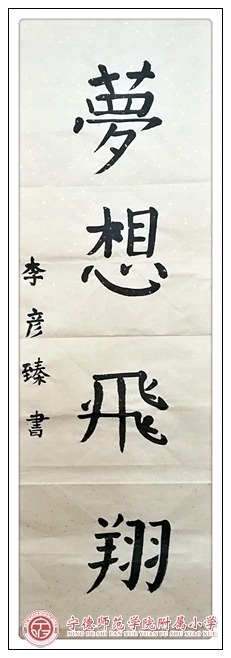 夢想飛翔
李彦臻書
宁德师范学院附属小学
NING DE SHI FAN XUE YUAN FU SHU XIAO XUE